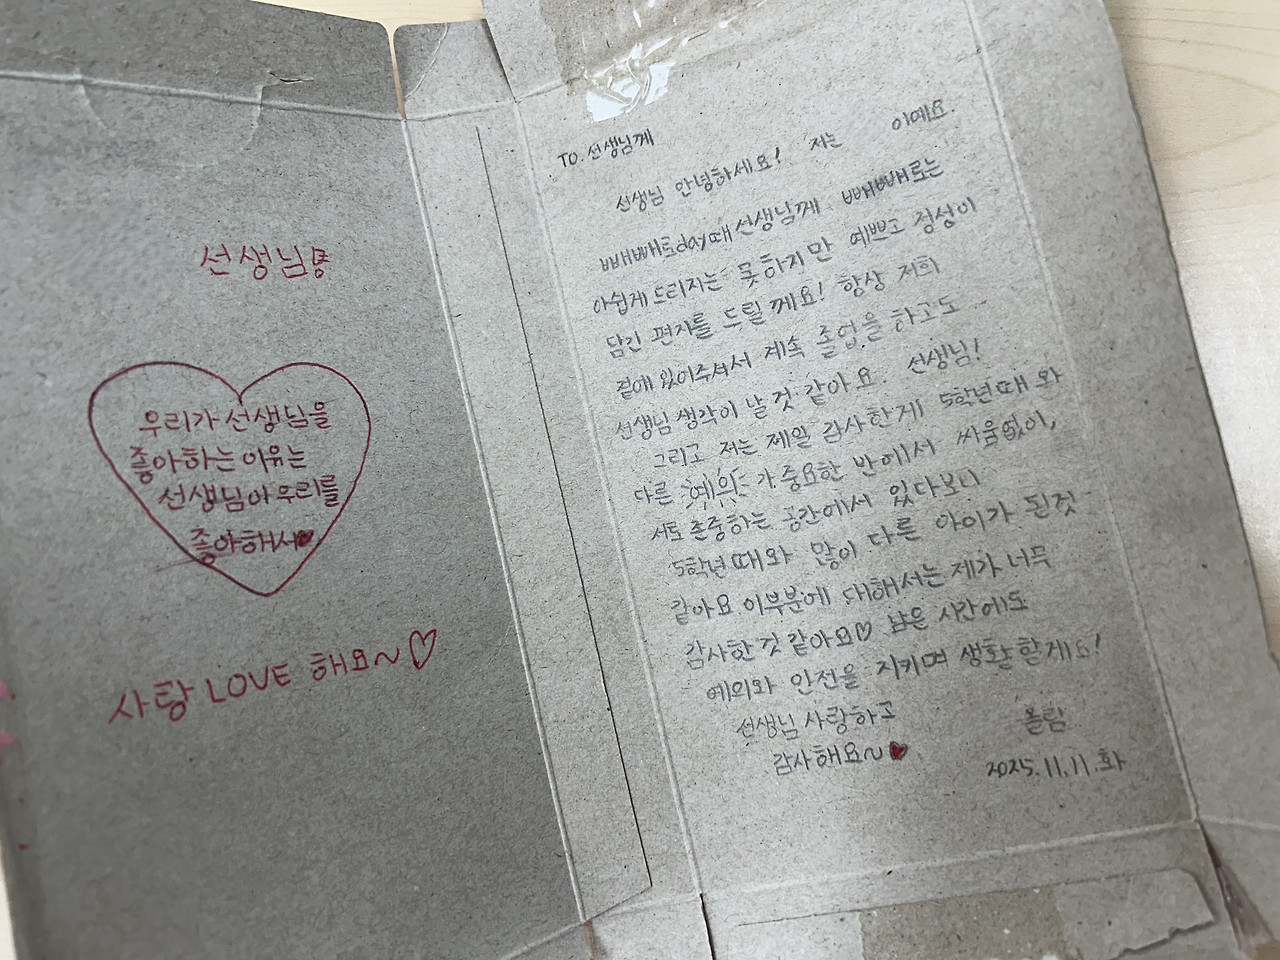 선생님
우리가 선생님을
좋아하는 이유는
선생님이 우리를
좋아해서♥
사랑 LOVE 해요~♡
TO. 선생님께
선생님 안녕하세요! 저는 이예요.
빼빼로day때 선생님께 빼빼로는
아쉽게 드리지는 못하지만 예쁘고 정성이
담긴 편지를 드릴께요! 항상 저희
곁에 있어주셔서 계속 졸업을 하고도
선생님 생각이 날 것 같아요. 선생님!
그리고 저는 제일 감사한게 5학년때와
다른 예의가 중요한 반에서 싸움없이,
서로 존중하는 공간에서 있다보니
5학년때와 많이 다른 아이가 된것
같아요 이부분에 대해서는 제가 너무
감사한것 같아요♡ 남은 시간에도
예의와 안전을 지키며 생활할게요!
선생님 사랑하고
감사해요~♥
올림
2025.11.11.화